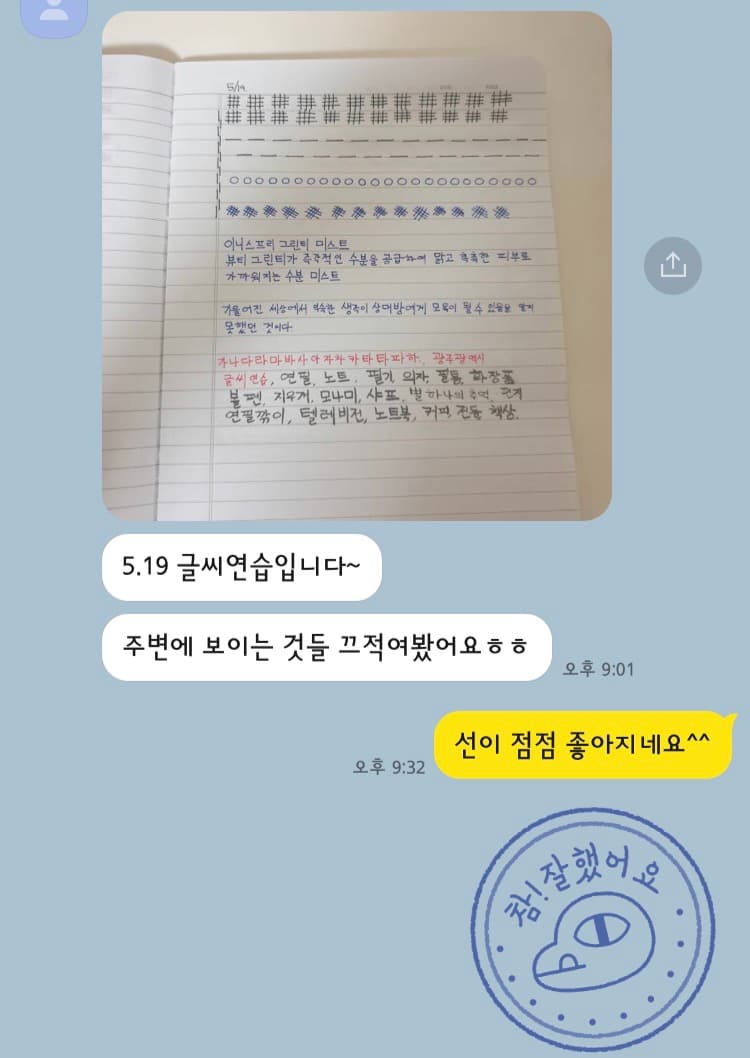 5/19
이니스프리 그린티 미스트
뷰티 그린티가 즉각적인 수분을 공급하여 맑고 촉촉한 피부로
가까워지는 수분 미스트
기울어진 세상에서 익숙한 생각이 상대방에게 모욕이 될 수 있음을 알지
못했던 것이다
가나다라마바사아자차카타파하, 광주광역시
글씨연습, 연필, 노트, 필기, 의자, 필통, 화장품
볼펜, 지우개, 모나미, 샤프, 별 하나의 추억
연필깎이, 텔레비전, 노트북, 커피, 책상.
5.19 글씨연습입니다~
주변에 보이는 것들 끄적여봤어요ㅎㅎ
오후 9:01
선이 점점 좋아지네요^^
오후 9:32
참! 잘했어요